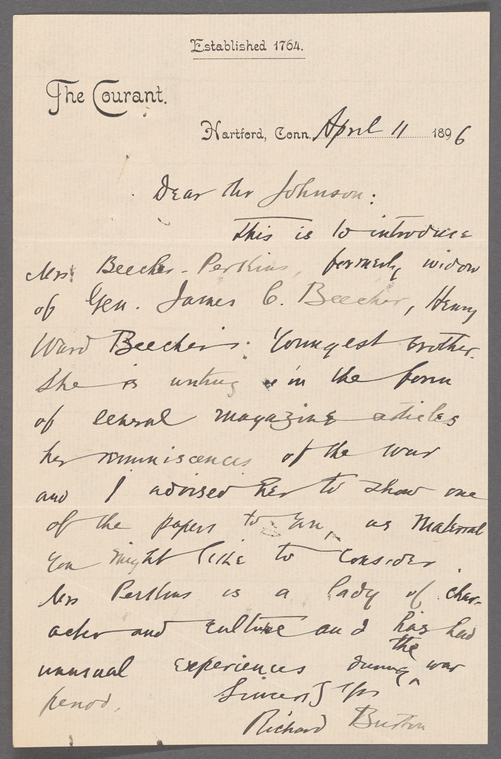 Established 1764.
The Courant.
Hartford, Conn. April 11 1896
Dear Mr Johnson:
This is to introduce
Mrs Beecher-Perkins, formerly widow
of Gen. James C. Beecher, Henry
Ward Beecher's youngest brother.
She is writing in the form
of several magazine articles
her reminiscences of the war
and I advised her to show one
of the papers to you, as material
you might like to consider.
Mrs Perkins is a lady of char-
acter and culture and has had
unusual experiences during the war
period.
Sincerely yrs
Richard Burton